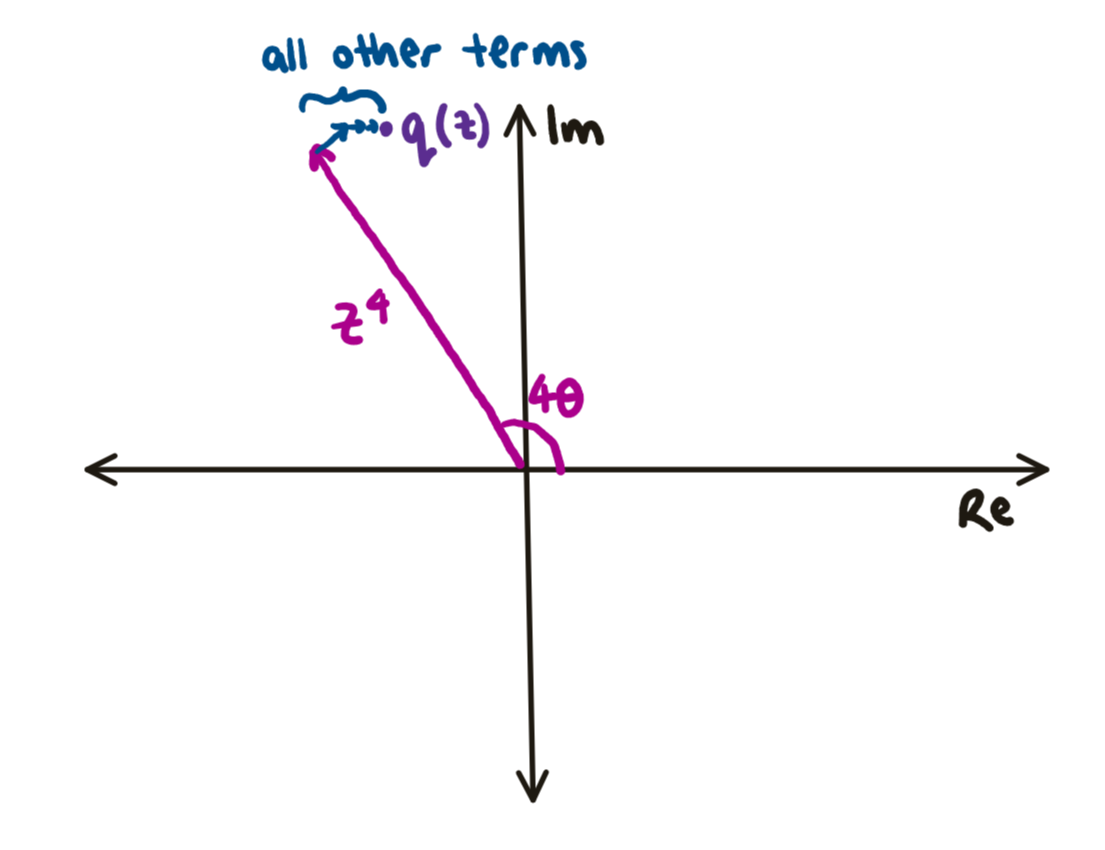 all other terms
q(z)
Im
z⁴
4θ
Re